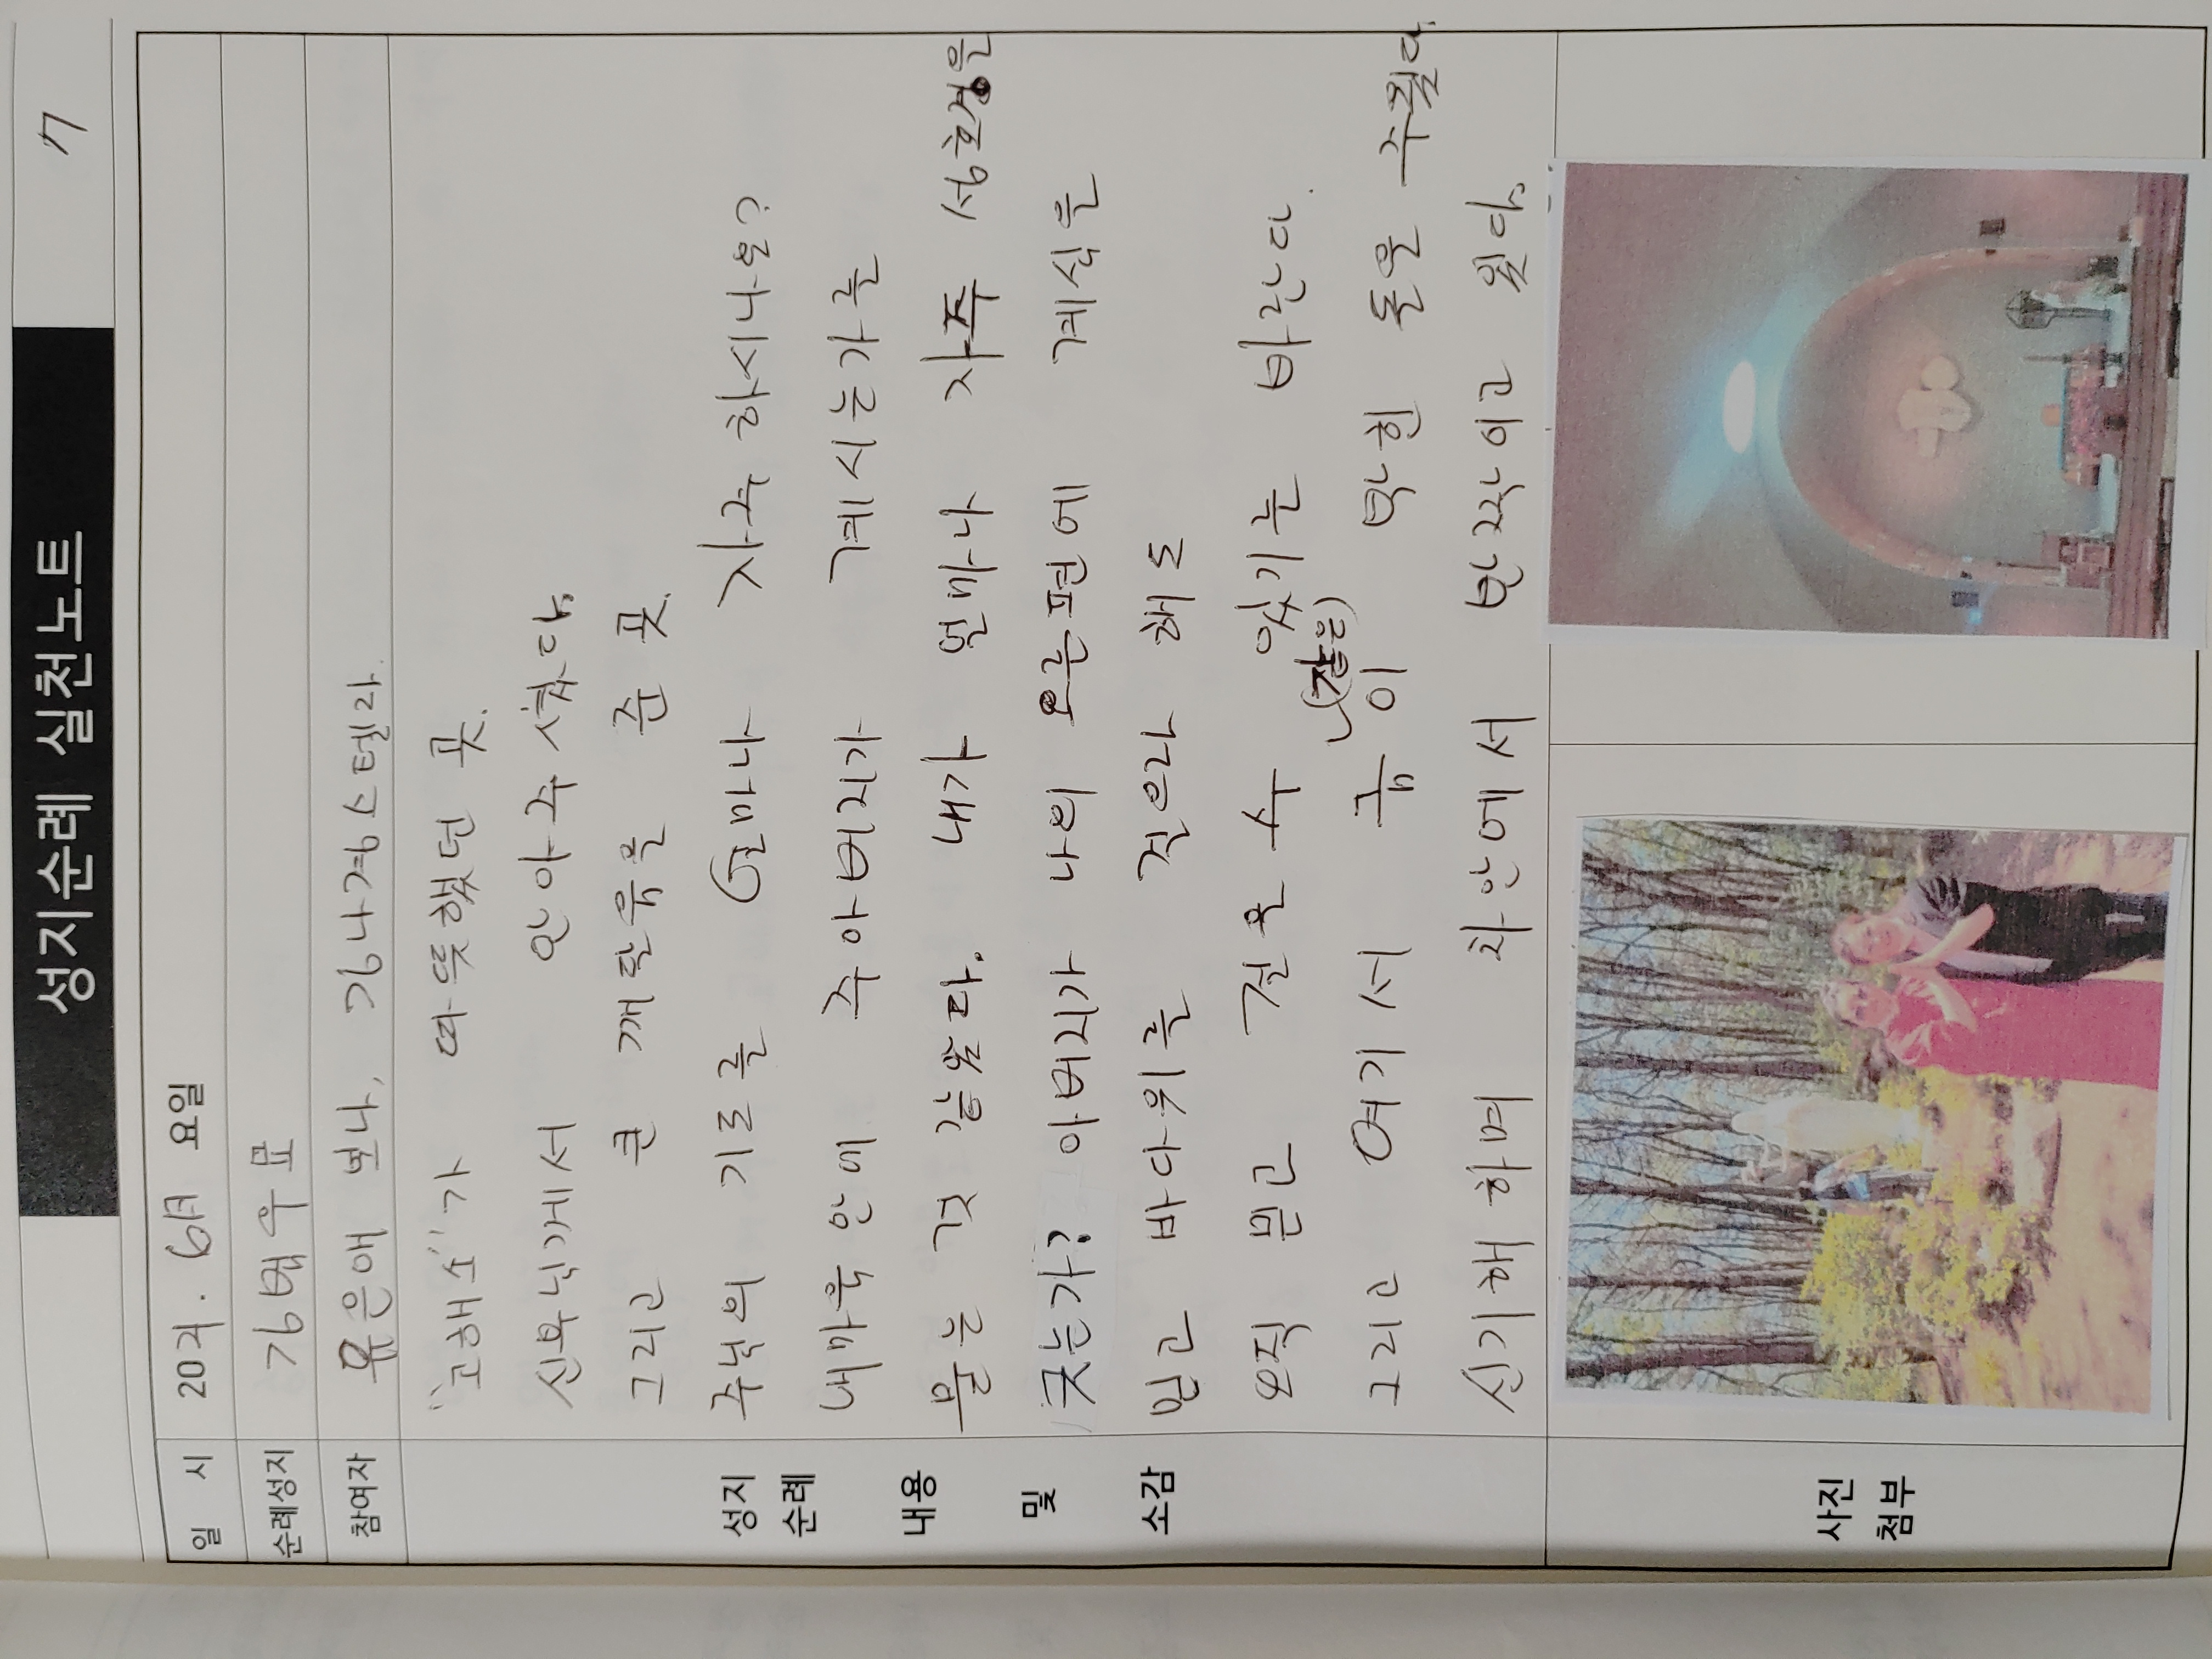 성지순례 실천노트
7
일 시 20 . 6月 요일
순례성지 김범우묘
참여자 유은애 보나, 김나경스텔라.
"고해소"가 따뜻했던 곳.
신부님께서 안아주셨다.
그리고 큰 깨달음을 준 곳.
주님의 기도를 얼마나 자주 하시나요?
내마음 안에 주아버지가 계시는가를
묻는 것 같았다. 내가 얼마나 자주 성호경을
긋는가? 아버지가 나의 오른편에 계심을
믿고 바다위를 걸으라 해도
오직 믿고 걸을 수 있기를 바란다.
(같은)
그리고 여기서 금 이 박힌 돌을 주웠다.
신기해 하며 차안에서 반짝이고 있다.
성지
순례
내용
및
소감
사진
첨부